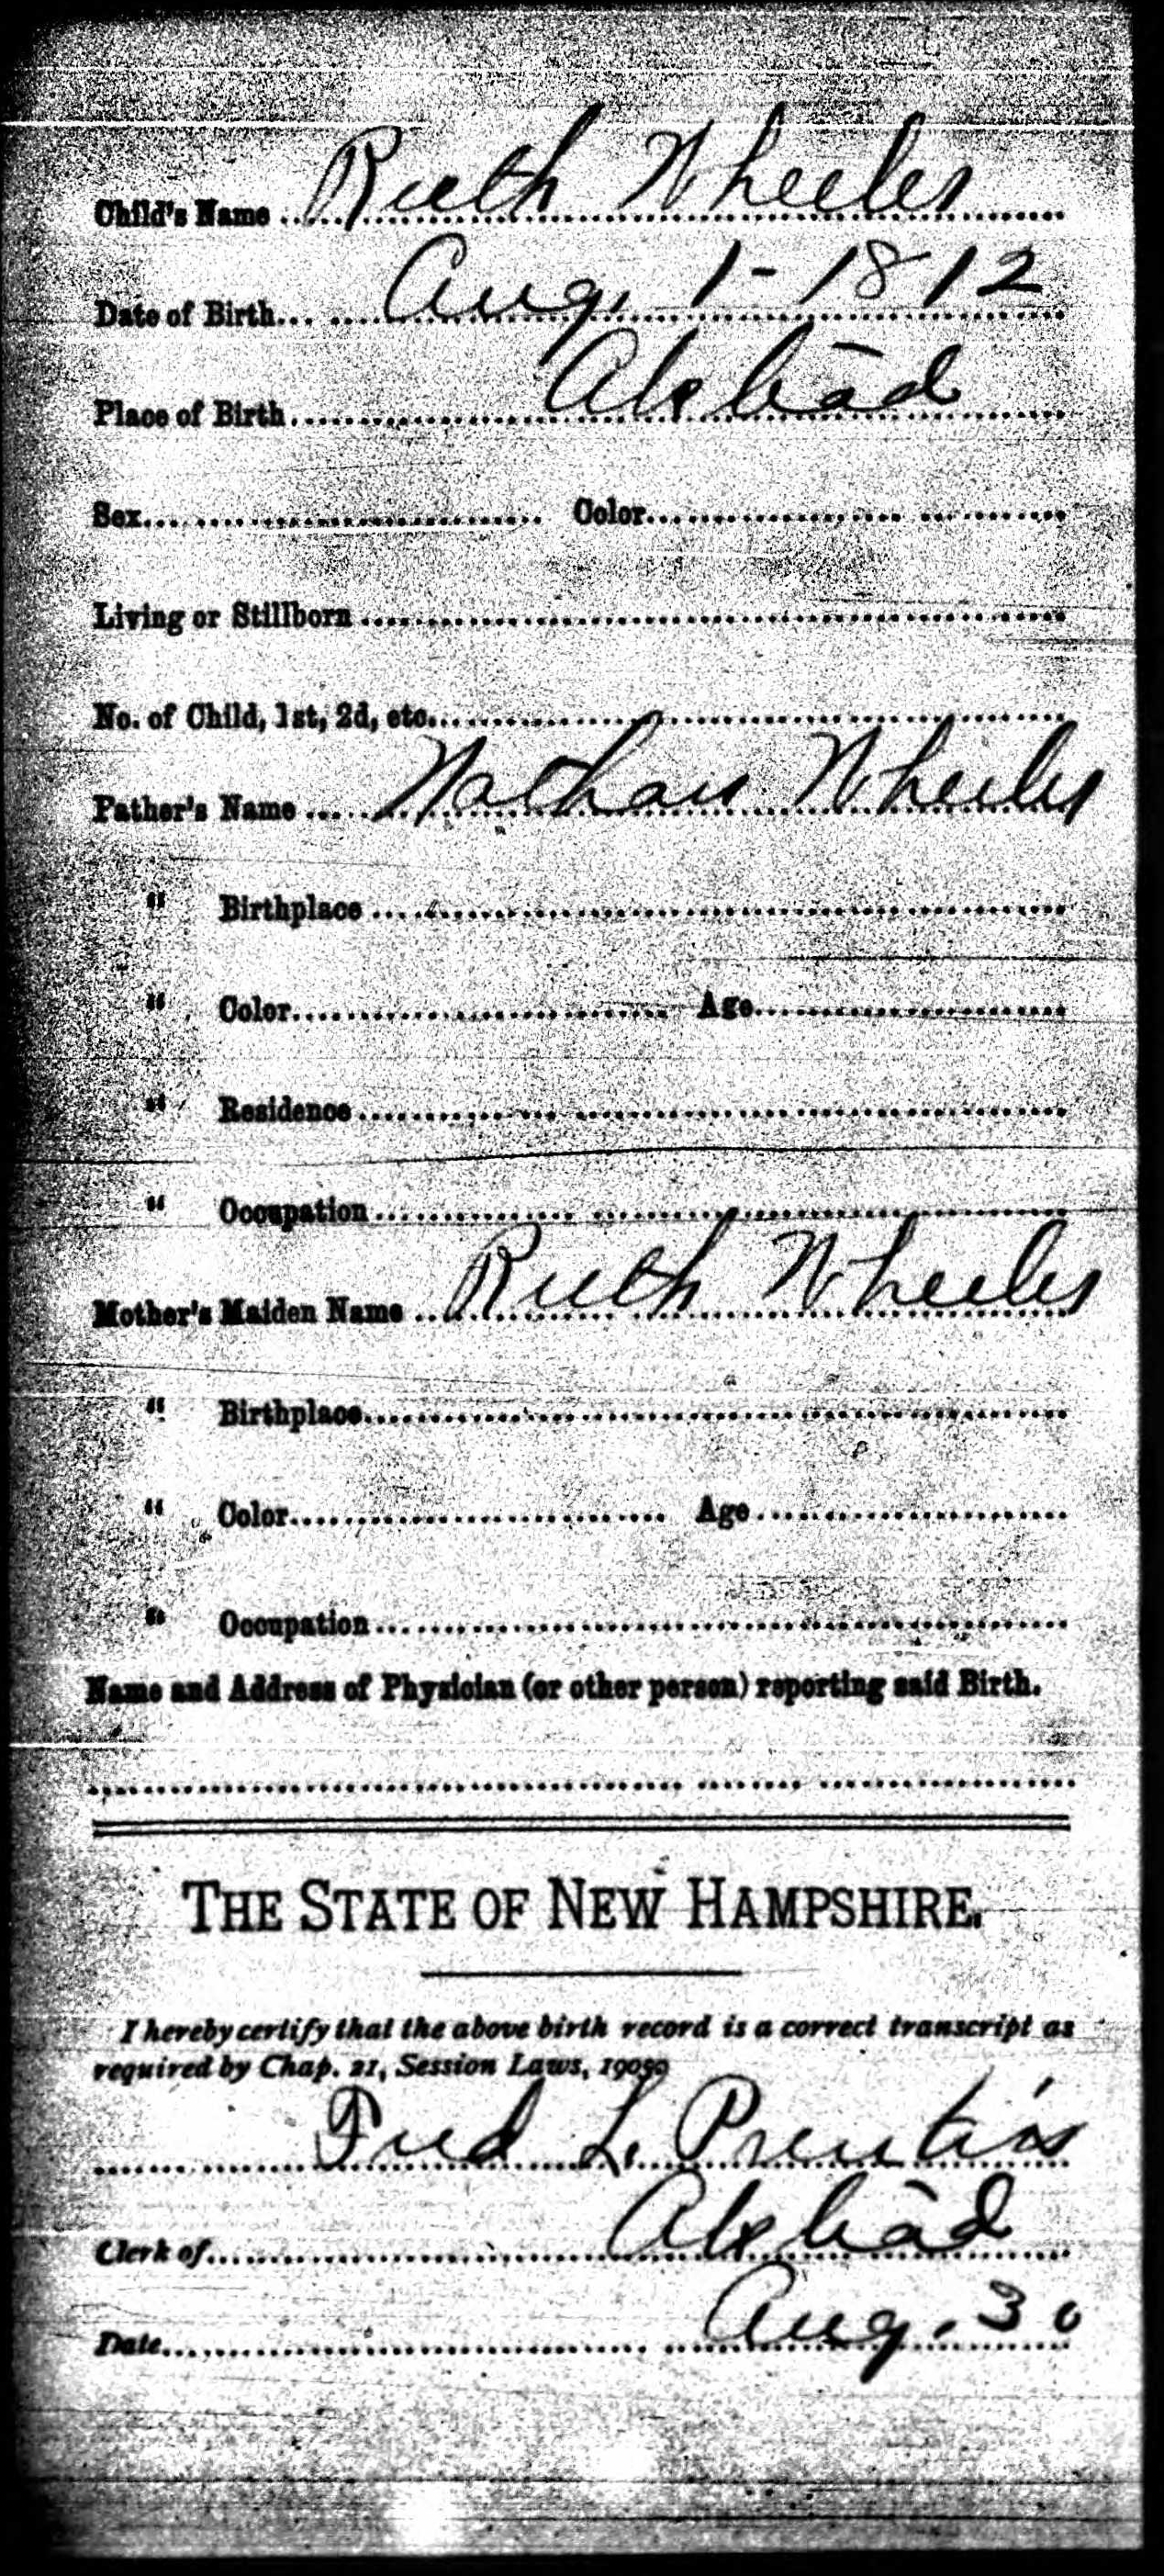 Child's Name Ruth Wheeler
Date of Birth Aug. 1 - 1812
Place of Birth Alstead
Sex Color
Living or Stillborn
No. of Child, 1st, 2d, etc.
Father's Name Nathan Wheeler
" Birthplace
" Color Age
" Residence
" Occupation
Mother's Maiden Name Ruth Wheeler
" Birthplace
" Color Age
" Occupation
Name and Address of Physician (or other person) reporting said Birth.
THE STATE OF NEW HAMPSHIRE.
I hereby certify that the above birth record is a correct transcript as
required by Chap. 21, Session Laws, 1905.
Fred L. Prentiss
Clerk of Alstead
Date Aug. 30